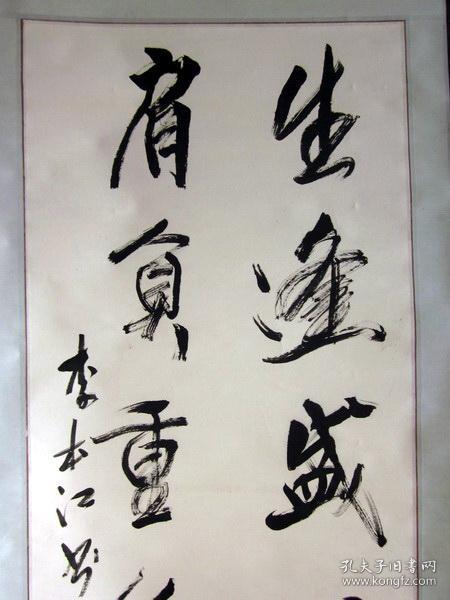 生逢盛
肩负重
李本江书
孔夫子旧书网
www.kongfz.com